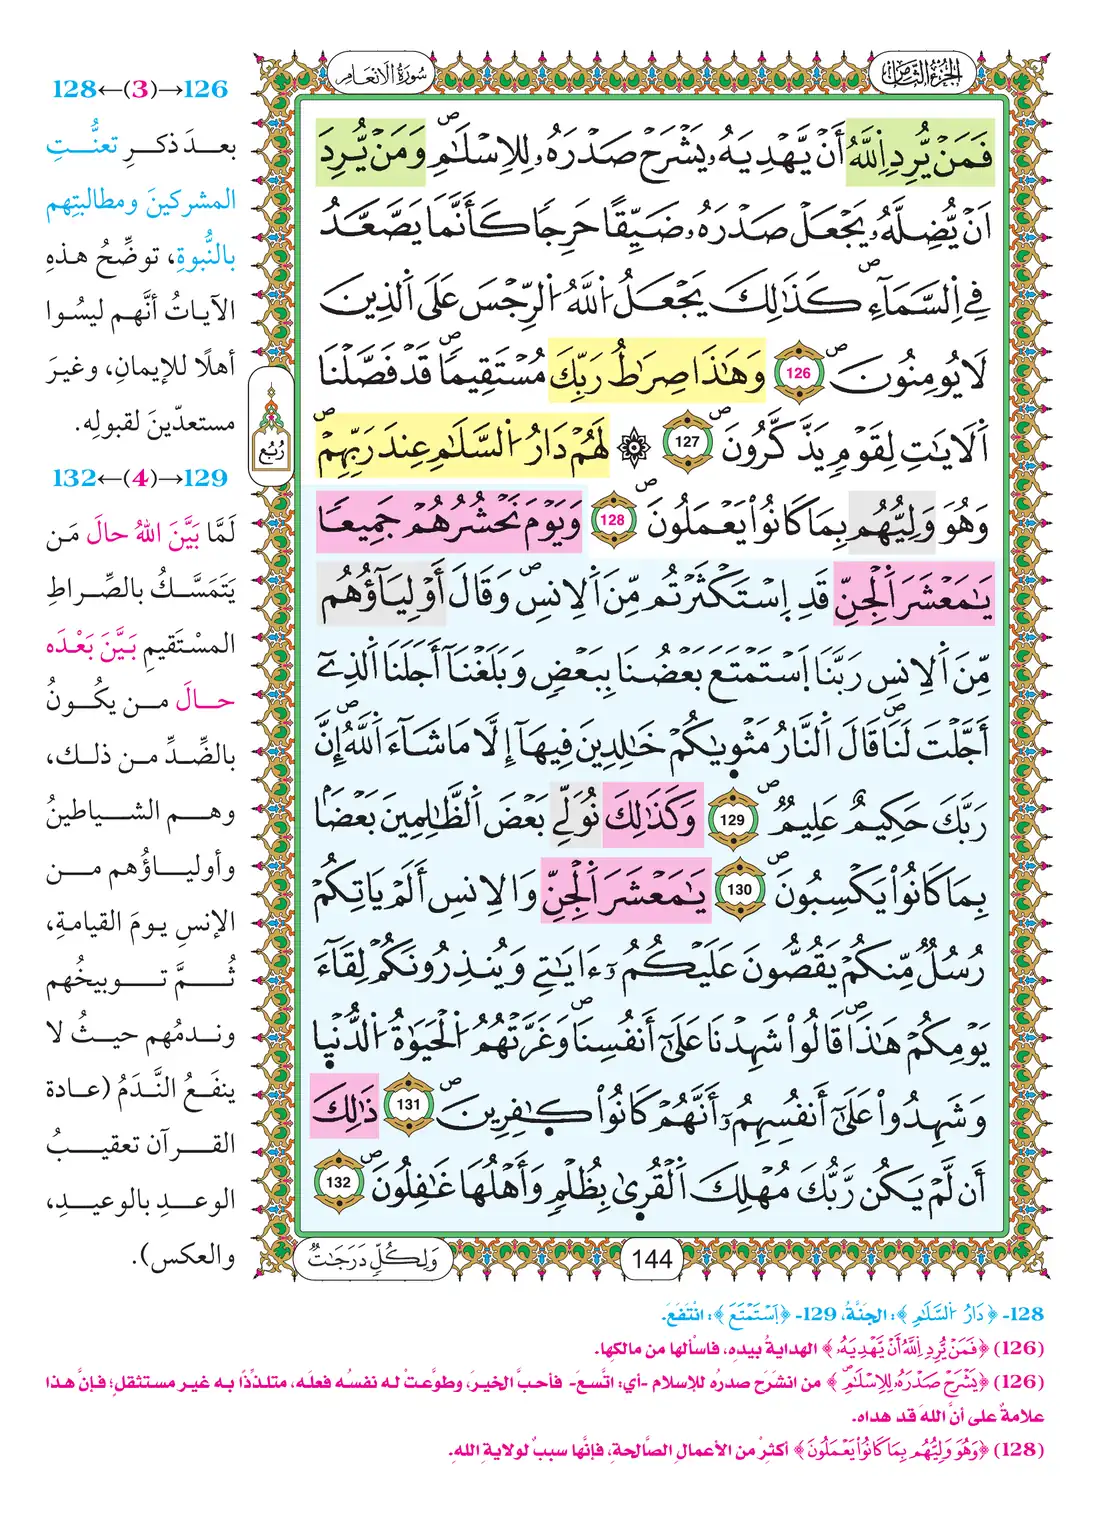 الجزء الثامن
سورة الأنعام
فَمَنْ يُّرِدِ اِ۬للَّهُ أَنْ يَّهْدِيَهُۥ يَشْرَحْ صَدْرَهُۥ لِلِاسْلَٰمِۖ وَمَنْ يُّرِدَ
اَنْ يُّضِلَّهُۥ يَجْعَلْ صَدْرَهُۥ ضَيِّقًا حَرِجًا كَأَنَّمَا يَصَّعَّدُ
فِے اِ۬لسَّمَآءِۖ كَذَٰلِكَ يَجْعَلُ اُ۬للَّهُ اُ۬لرِّجْسَ عَلَى اَ۬لذِينَ
لَا يُومِنُونَۖ 126 وَهَٰذَا صِرَٰطُ رَبِّكَ مُسْتَقِيمًاۖ قَدْ فَصَّلْنَا
اَ۬لَايَٰتِ لِقَوْمٖ يَذَّكَّرُونَۖ 127 ۞ لَهُمْ دَارُ اُ۬لسَّلَٰمِ عِندَ رَبِّهِمْۖ
وَهُوَ وَلِيُّهُم بِمَا كَانُواْ يَعْمَلُونَۖ 128 وَيَوْمَ نَحْشُرُهُمْ جَمِيعًا
يَٰمَعْشَرَ اَ۬لْجِنِّ قَدِ اِ۪سْتَكْثَرْتُم مِّنَ اَ۬لِانسِۖ وَقَالَ أَوْلِيَآؤُهُم
مِّنَ اَ۬لِانسِ رَبَّنَا اَ۪سْتَمْتَعَ بَعْضُنَا بِبَعْضٖ وَبَلَغْنَآ أَجَلَنَا اَ۬لذِےٓ
أَجَّلْتَ لَنَاۖ قَالَ اَ۬لنَّارُ مَثْو۪يٰكُمْ خَٰلِدِينَ فِيهَآ إِلَّا مَا شَآءَ اَ۬للَّهُۖ إِنَّ
رَبَّكَ حَكِيمٌ عَلِيمٞۖ 129 وَكَذَٰلِكَ نُوَلِّے بَعْضَ اَ۬لظَّٰلِمِينَ بَعْضَاۢ
بِمَا كَانُواْ يَكْسِبُونَۖ 130 يَٰمَعْشَرَ اَ۬لْجِنِّ وَالِانسِ أَلَمْ يَاتِكُمْ
رُسُلٞ مِّنكُمْ يَقُصُّونَ عَلَيْكُمُۥٓ ءَايَٰتِے وَيُنذِرُونَكُمْ لِقَآءَ
يَوْمِكُمْ هَٰذَاۖ قَالُواْ شَهِدْنَا عَلَىٰٓ أَنفُسِنَاۖ وَغَرَّتْهُمُ اُ۬لْحَيَوٰةُ اُ۬لدُّنْي۪ا
وَشَهِدُواْ عَلَىٰٓ أَنفُسِهِمُۥٓ أَنَّهُمْ كَانُواْ كٰ۪فِرِينَۖ 131 ذَٰلِكَ
أَن لَّمْ يَكُن رَّبُّكَ مُهْلِكَ اَ۬لْقُر۪ىٰ بِظُلْمٖ وَأَهْلُهَا غَٰفِلُونَۖ 132
رُبُع
وَلِكُلّٖ دَرَجَٰتٞ
144
126→(3)←128
بعـدَ ذكـرِ تعنُّـتِ
المشركينَ ومطالبتِهم
بالنُّبوةِ، توضِّحُ هـذهِ
الآيـاتُ أنَّهـم ليسُـوا
أهلًا للإيمانِ، وغيـرَ
مستعدّينَ لقبولِه.
129→(4)←132
لَمَّا بَيَّنَ اللهُ حالَ مَـن
يَتَمَسَّـكُ بالصِّـراطِ
المسْـتَقيمِ بَـيَّنَ بَعْـدَه
حـالَ مـن يكـونُ
بالضِّـدِّ مـن ذلـك،
وهـم الشـياطينُ
وأوليـاؤُهم مـن
الإنسِ يـومَ القيامـةِ،
ثُـمَّ تـوبيخُهم
ونـدمُهم حيـثُ لا
ينفَـعُ النَّـدَمُ (عـادة
القـرآن تعقيـبُ
الوعـدِ بالوعيـدِ،
والعكس).
128- ﴿دَارُ اُ۬لسَّلَٰمِ﴾: الجنَّةُ، 129- ﴿اَ۪سْتَمْتَعَ﴾: انْتَفَعَ.
(126) ﴿فَمَنْ يُّرِدِ اِ۬للَّهُ أَنْ يَّهْدِيَهُۥ﴾ الهدايةُ بيدِهِ، فاسألها من مالكِها.
(126) ﴿يَشْرَحْ صَدْرَهُۥ لِلِاسْلَٰمِۖ﴾ من انشرَحَ صدرُه للإسلام -أي: اتَّسعَ- فأحبَّ الخيرَ، وطوَّعتْ له نفسُه فعلَه، متلذِّذًا به غير مستثقلٍ؛ فإنَّ هذا
علامةٌ على أنَّ اللهَ قد هداه.
(128) ﴿وَهُوَ وَلِيُّهُم بِمَا كَانُواْ يَعْمَلُونَ﴾ أكثِرْ من الأعمالِ الصَّالحةِ، فإنَّها سببٌ لولايةِ الله.